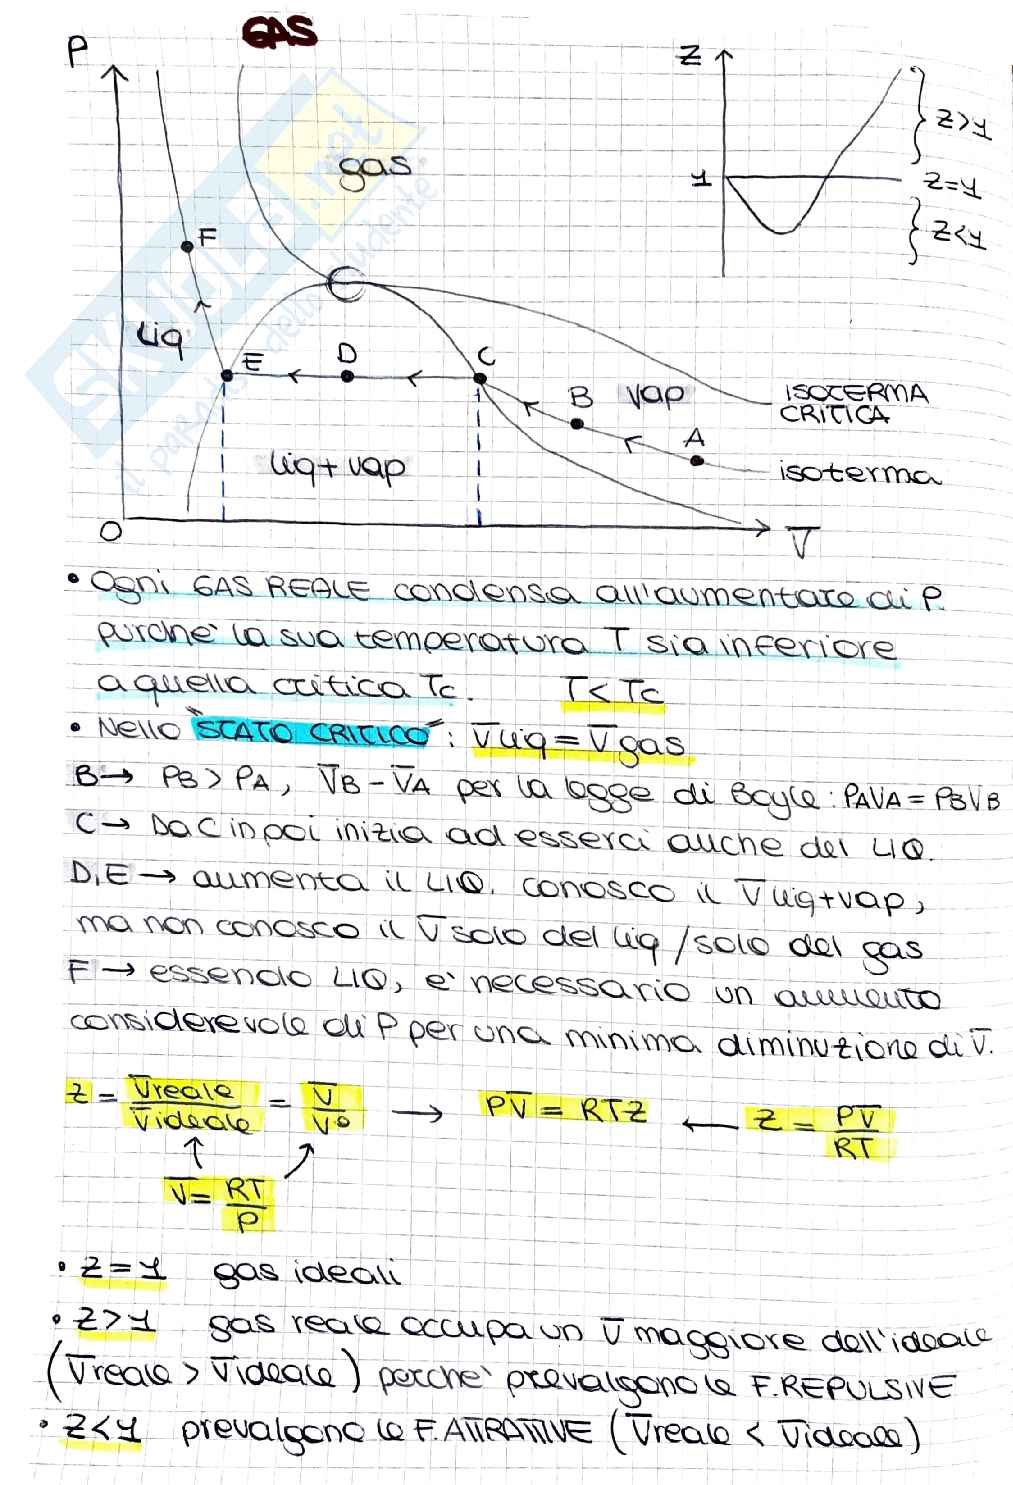 GAS
P
Z
gas
Z>1
1
Z=1
Z<1
F
Liq
E
D
C
B
vap
A
ISOTERMA
CRITICA
liq+vap
isoterma
O
V̅
• Ogni GAS REALE condensa all'aumentare di P.
purche' la sua temperatura T sia inferiore
a quella critica Tc. T < Tc
• Nello "STATO CRITICO": V̅liq = V̅gas
B → PB > PA, V̅B - V̅A per la legge di Boyle: PAVA = PBVB
C → Da C in poi inizia ad esserci anche del LIQ.
D,E → aumenta il LIQ. conosco il V̅liq+vap,
ma non conosco il V̅ solo del liq / solo del gas
F → essendo LIQ, e' necessario un aumento
considerevole di P per una minima diminuzione di V̅.
Z = V̅reale / V̅ideale = V̅ / V̅° → PV̅ = RTZ ← Z = PV̅ / RT
V̅ = RT / P
• Z=1 gas ideali
• Z>1 gas reale occupa un V̅ maggiore dell'ideale
(V̅reale > V̅ideale) perche' prevalgono le F. REPULSIVE
• Z<1 prevalgono le F. ATTRATTIVE (V̅reale < V̅ideale)
SKUOLA.net
il paradiso dello studente